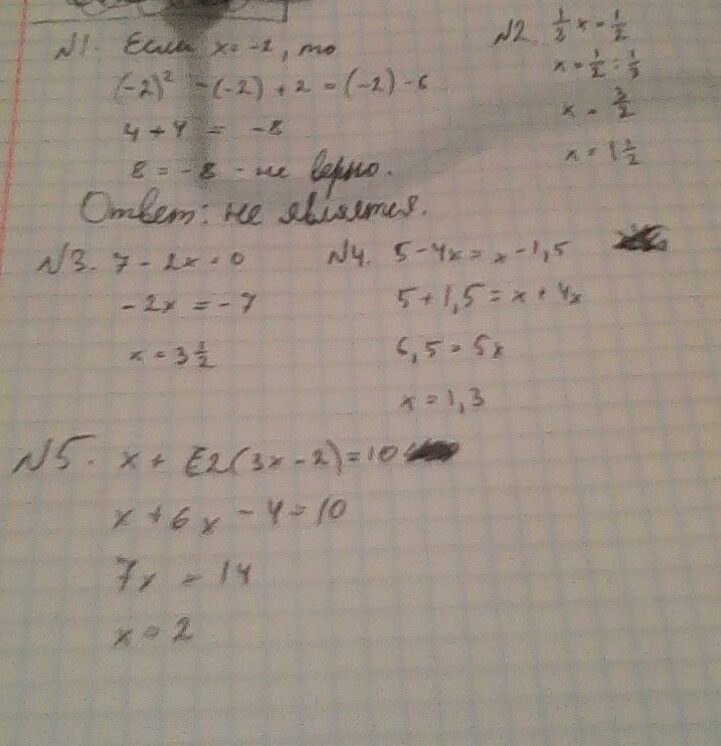 N1. Если x = -2, то
(-2)² - (-2) + 2 = (-2) - 6
4 + 4 = -8
8 = -8 - не верно.
Ответ: не является.
N2. 1/3 x = 1/2
x = 1/2 : 1/3
x = 3/2
x = 1 1/2
N3. 7 - 2x = 0
-2x = -7
x = 3 1/2
N4. 5 - 4x = x - 1,5
5 + 1,5 = x + 4x
6,5 = 5x
x = 1,3
N5. x + 2(3x - 2) = 10
x + 6x - 4 = 10
7x = 14
x = 2